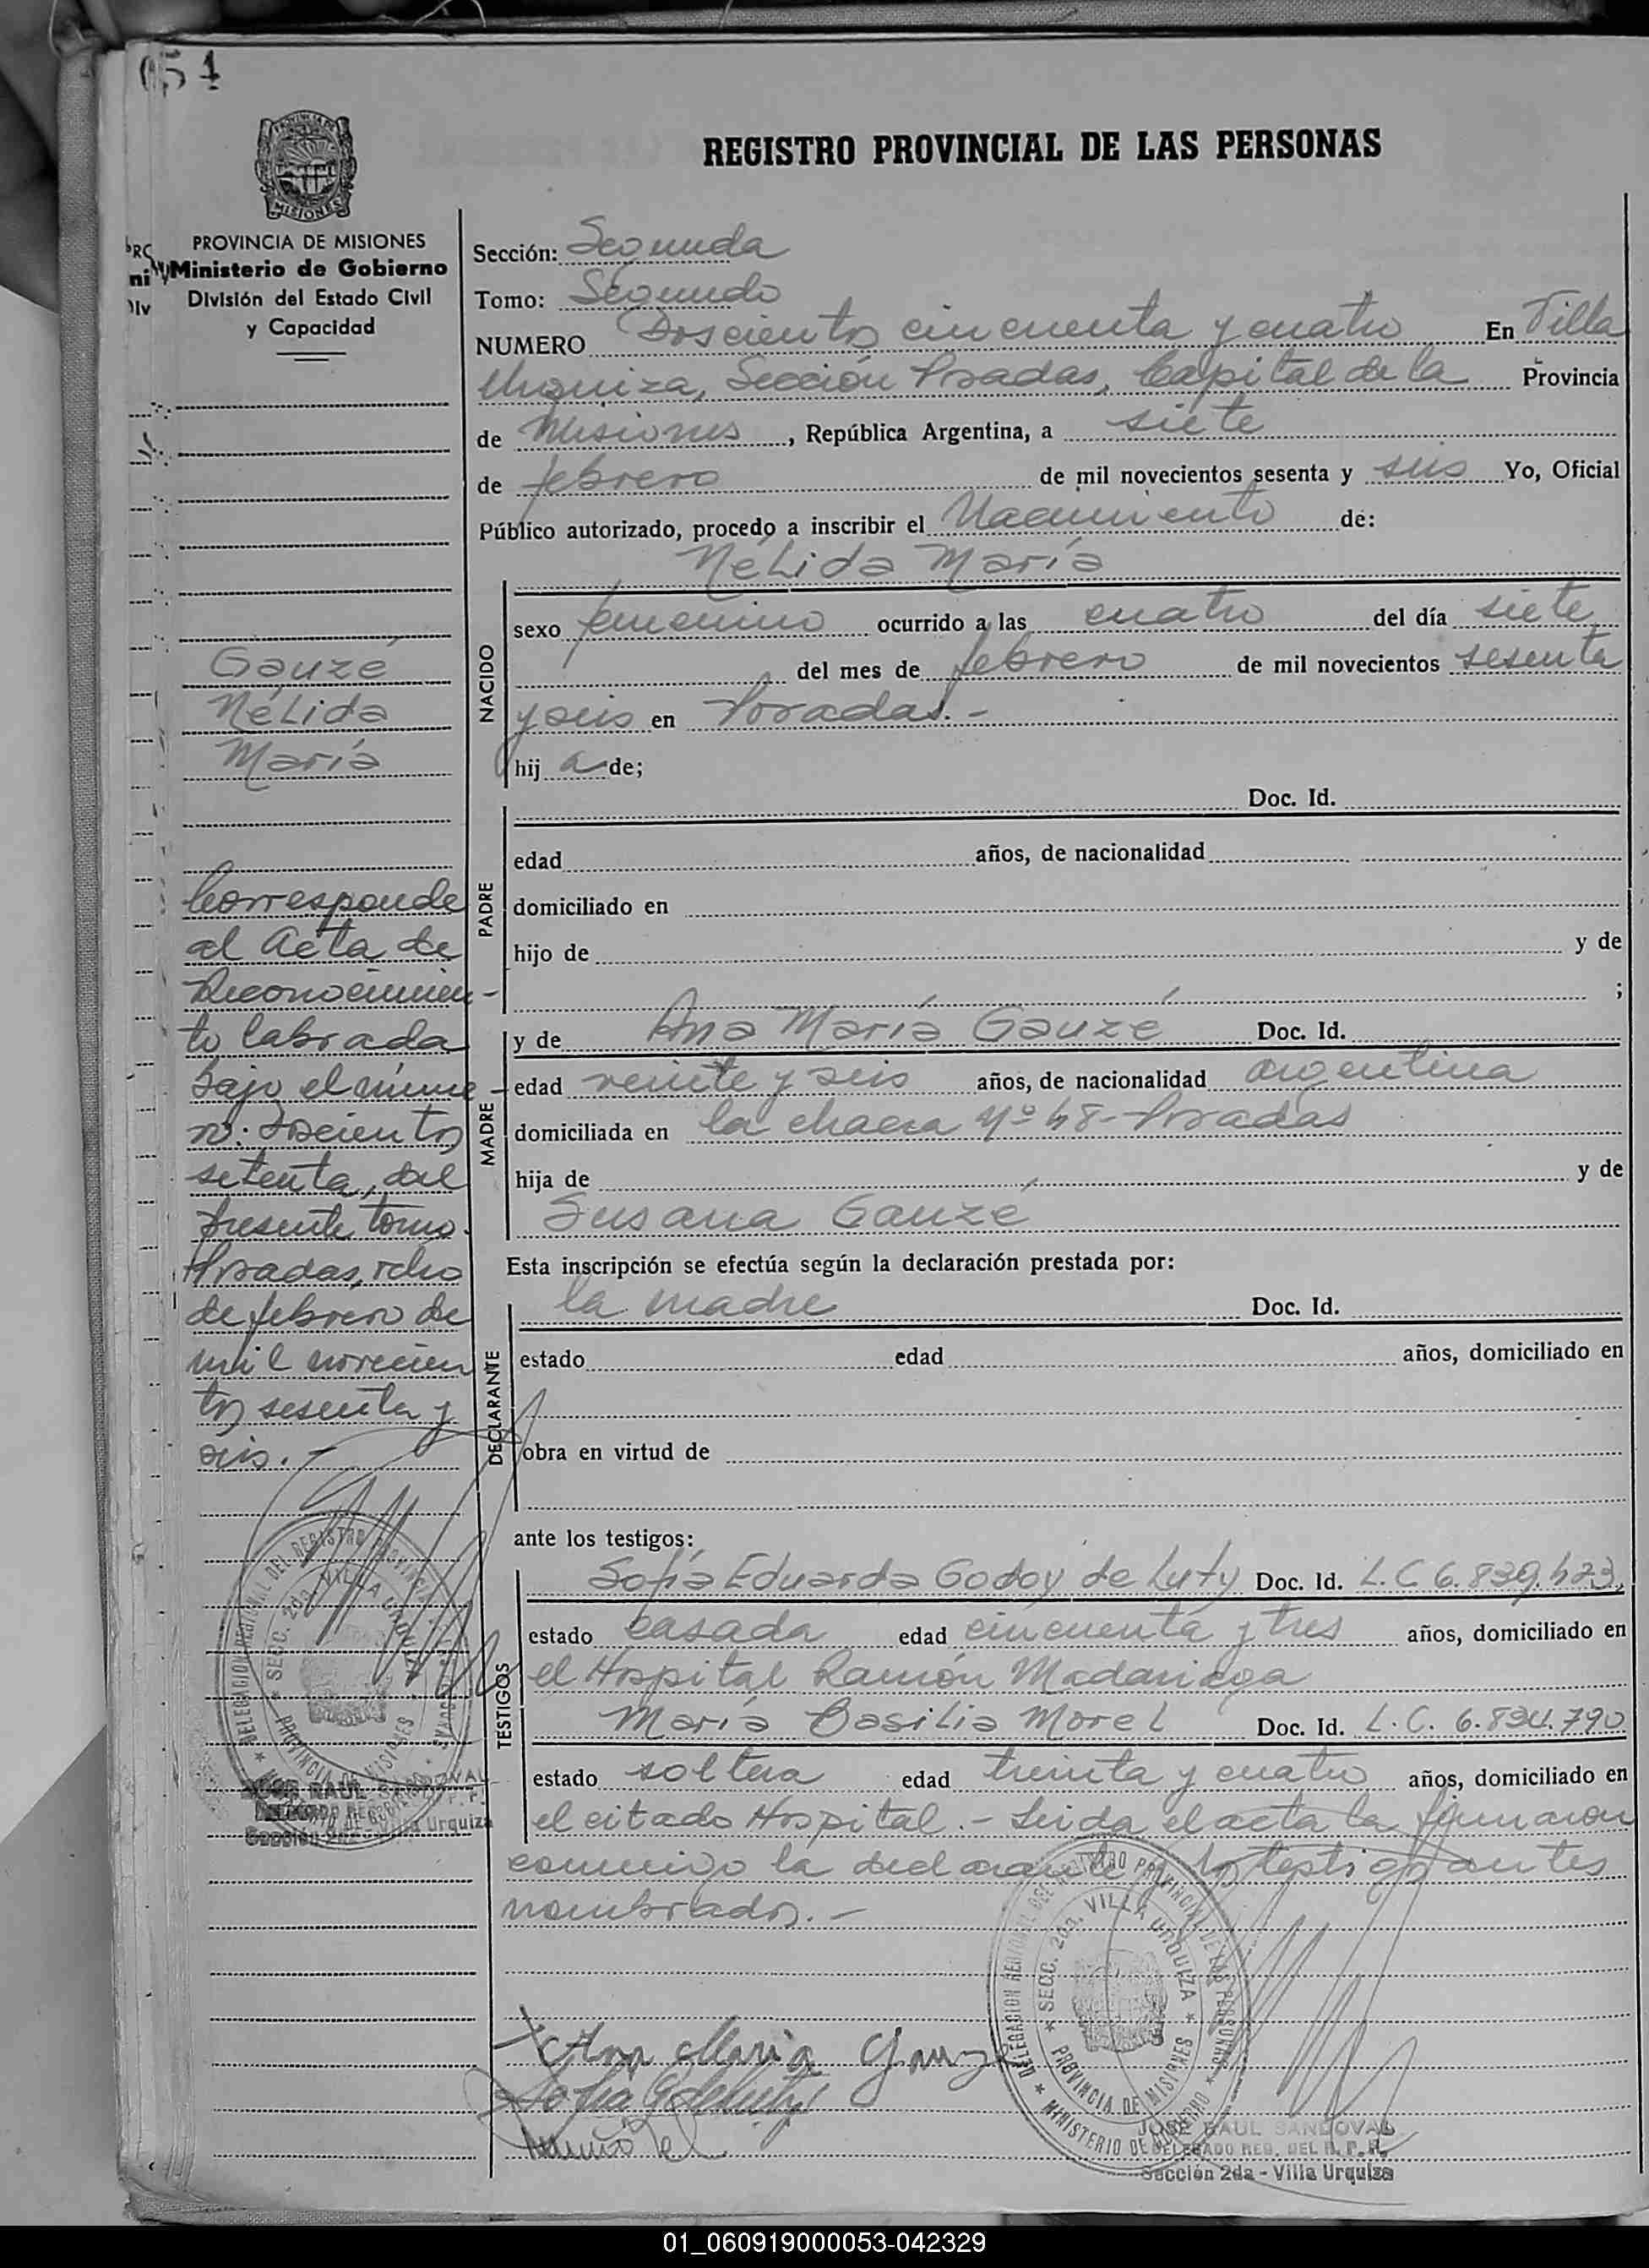 054
REGISTRO PROVINCIAL DE LAS PERSONAS
PROVINCIA DE MISIONES
Ministerio de Gobierno
División del Estado Civil
y Capacidad
Gauzé
Nélida
María
Corresponde
al Acta de
Reconocimien-
to labrada
bajo el núme-
ro: Doscientos
setenta, del
presente tomo.
Posadas, ocho
de febrero de
mil novecien
tos sesenta y
seis.-
Sección: Segunda
Tomo: Segundo
NUMERO Doscientos cincuenta y cuatro En Villa
Urquiza, Sección Posadas, Capital de la Provincia
de Misiones, República Argentina, a siete
de febrero de mil novecientos sesenta y seis Yo, Oficial
Público autorizado, procedo a inscribir el Nacimiento de:
Nélida María
NACIDO
sexo femenino ocurrido a las cuatro del día siete
del mes de febrero de mil novecientos sesenta
y seis en Posadas.-
hij a de;
PADRE
Doc. Id.
edad años, de nacionalidad
domiciliado en
hijo de y de
;
MADRE
y de Ana María Gauzé Doc. Id.
edad veinte y seis años, de nacionalidad argentina
domiciliada en la chacra Nº 48-Posadas
hija de y de
Susana Gauzé
Esta inscripción se efectúa según la declaración prestada por:
DECLARANTE
la madre Doc. Id.
estado edad años, domiciliado en
obra en virtud de
ante los testigos:
TESTIGOS
Sofía Eduarda Godoy de Luty Doc. Id. L.C 6.839.423,
estado casada edad cincuenta y tres años, domiciliado en
el Hospital Ramón Madariaga
María Basilia Morel Doc. Id. L.C. 6.834.790
estado soltera edad treinta y cuatro años, domiciliado en
el citado Hospital.- Leida el acta la firmaron
conmigo la declarante y los testigos antes
nombrados.-
Ana Maria Gauze
DELEGACION REGIONAL DEL REGISTRO PROVINCIAL DE LAS PERSONAS
SECC. 2da. VILLA URQUIZA
PROVINCIA DE MISIONES
MINISTERIO DE GOBIERNO
JOSE RAUL SANDOVAL
DELEGADO REG. DEL R. P. P.
Sección 2da - Villa Urquiza
01_060919000053-042329